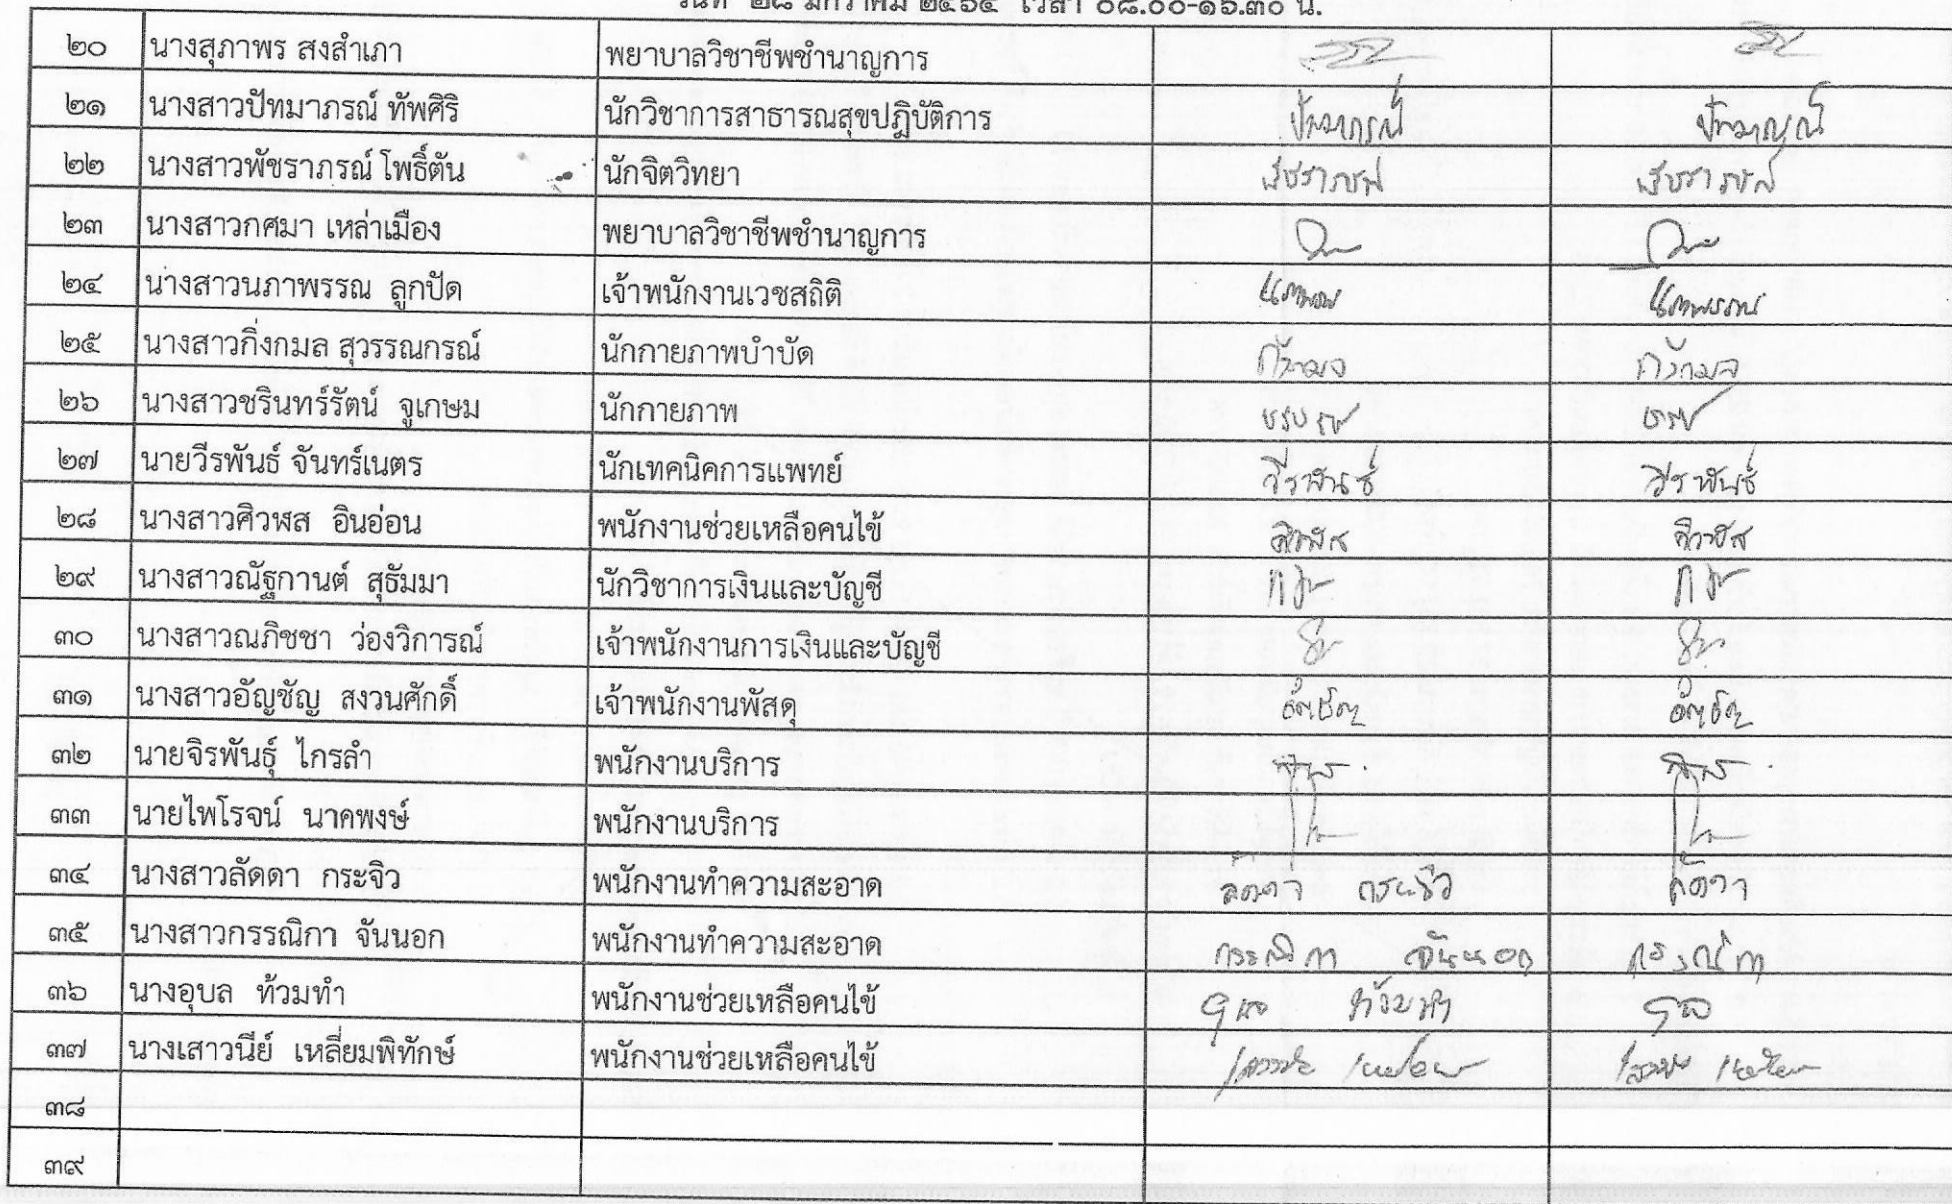 วันที่ ๒๘ มกราคม ๒๕๖๔ เวลา ๐๘.๐๐-๑๖.๓๐ น.
๒๐ นางสุภาพร สงสำเภา พยาบาลวิชาชีพชำนาญการ
๒๑ นางสาวปัทมาภรณ์ ทัพศิริ นักวิชาการสาธารณสุขปฏิบัติการ ปัทมาภรณ์ ปัทมาภรณ์
๒๒ นางสาวพัชราภรณ์ โพธิ์ตัน นักจิตวิทยา พัชราภรณ์ พัชราภรณ์
๒๓ นางสาวกศมา เหล่าเมือง พยาบาลวิชาชีพชำนาญการ
๒๔ นางสาวนภาพรรณ ลูกปัด เจ้าพนักงานเวชสถิติ นภาพรรณ นภาพรรณ
๒๕ นางสาวกิ่งกมล สุวรรณกรณ์ นักกายภาพบำบัด กิ่งกมล กิ่งกมล
๒๖ นางสาวชรินทร์รัตน์ จูเกษม นักกายภาพ
๒๗ นายวีรพันธ์ จันทร์เนตร นักเทคนิคการแพทย์ วีรพันธ์ วีรพันธ์
๒๘ นางสาวศิวพัส อินอ่อน พนักงานช่วยเหลือคนไข้ ศิวพัส ศิวพัส
๒๙ นางสาวณัฐกานต์ สุธัมมา นักวิชาการเงินและบัญชี
๓๐ นางสาวณภิชชา ว่องวิการณ์ เจ้าพนักงานการเงินและบัญชี
๓๑ นางสาวอัญชัญ สงวนศักดิ์ เจ้าพนักงานพัสดุ อัญชัญ อัญชัญ
๓๒ นายจิรพันธุ์ ไกรลำ พนักงานบริการ
๓๓ นายไพโรจน์ นาคพงษ์ พนักงานบริการ
๓๔ นางสาวลัดดา กระจิว พนักงานทำความสะอาด ลัดดา กระจิว ลัดดา
๓๕ นางสาวกรรณิกา จันนอก พนักงานทำความสะอาด กรรณิกา จันนอก กรรณิกา
๓๖ นางอุบล ท้วมทำ พนักงานช่วยเหลือคนไข้ อุบล ท้วมทำ อุบล
๓๗ นางเสาวนีย์ เหลี่ยมพิทักษ์ พนักงานช่วยเหลือคนไข้
๓๘
๓๙